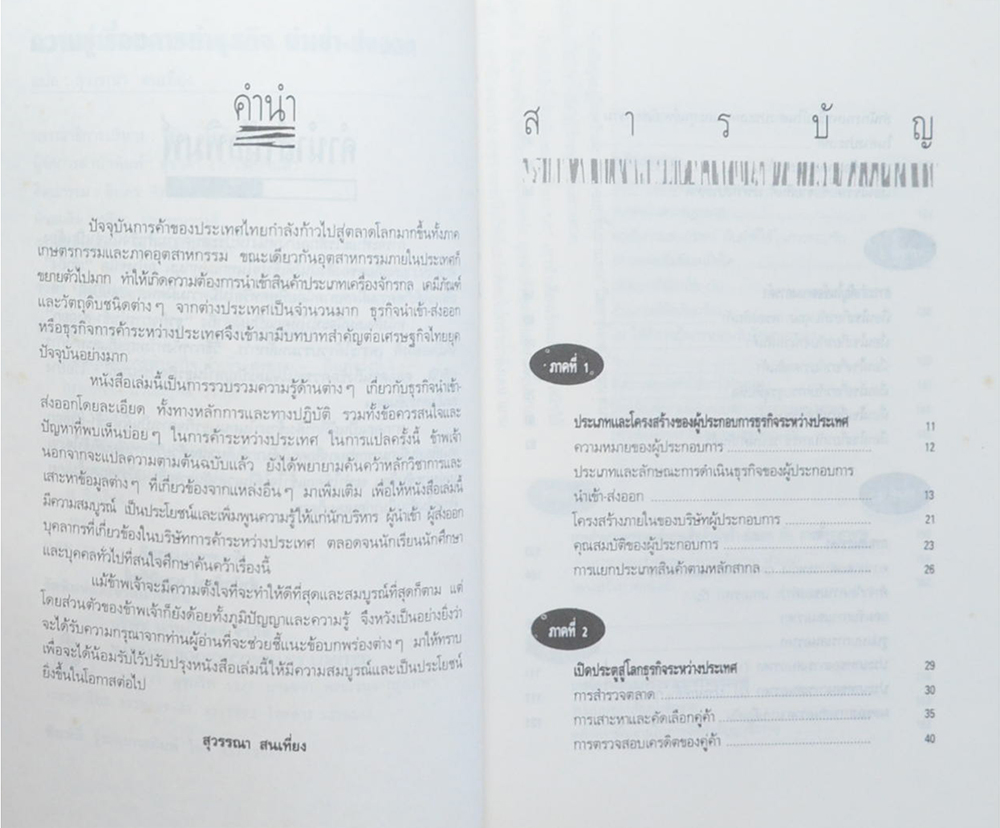 คำนำ
ปัจจุบันการค้าของประเทศไทยกำลังก้าวไปสู่ตลาดโลกมากขึ้นทั้งภาค
เกษตรกรรมและภาคอุตสาหกรรม ขณะเดียวกันอุตสาหกรรมภายในประเทศก็
ขยายตัวไปมาก ทำให้เกิดความต้องการนำเข้าสินค้าประเภทเครื่องจักรกล เคมีภัณฑ์
และวัตถุดิบชนิดต่างๆ จากต่างประเทศเป็นจำนวนมาก ธุรกิจนำเข้า-ส่งออก
หรือธุรกิจการค้าระหว่างประเทศจึงเข้ามามีบทบาทสำคัญต่อเศรษฐกิจไทยยุค
ปัจจุบันอย่างมาก
หนังสือเล่มนี้เป็นการรวบรวมความรู้ด้านต่างๆ เกี่ยวกับธุรกิจนำเข้า-
ส่งออกโดยละเอียด ทั้งทางหลักการและทางปฏิบัติ รวมทั้งข้อควรสนใจและ
ปัญหาที่พบเห็นบ่อยๆ ในการค้าระหว่างประเทศ ในการแปลครั้งนี้ ข้าพเจ้า
นอกจากจะแปลความตามต้นฉบับแล้ว ยังได้พยายามค้นคว้าหลักวิชาการและ
เสาะหาข้อมูลต่างๆ ที่เกี่ยวข้องจากแหล่งอื่นๆ มาเพิ่มเติม เพื่อให้หนังสือเล่มนี้
มีความสมบูรณ์ เป็นประโยชน์และเพิ่มพูนความรู้ให้แก่นักบริหาร ผู้นำเข้า ผู้ส่งออก
บุคลากรที่เกี่ยวข้องในบริษัทการค้าระหว่างประเทศ ตลอดจนนักเรียนนักศึกษา
และบุคคลทั่วไปที่สนใจศึกษาค้นคว้าเรื่องนี้
แม้ข้าพเจ้าจะมีความตั้งใจที่จะทำให้ดีที่สุดและสมบูรณ์ที่สุดก็ตาม แต่
โดยส่วนตัวของข้าพเจ้าก็ยังด้อยทั้งภูมิปัญญาและความรู้ จึงหวังเป็นอย่างยิ่งว่า
จะได้รับความกรุณาจากท่านผู้อ่านที่จะช่วยชี้แนะข้อบกพร่องต่างๆ มาให้ทราบ
เพื่อจะได้น้อมรับไว้ปรับปรุงหนังสือเล่มนี้ให้มีความสมบูรณ์และเป็นประโยชน์
ยิ่งขึ้นในโอกาสต่อไป
สุวรรณา สนเที่ยง
สารบัญ
ภาคที่ 1
ประเภทและโครงสร้างของผู้ประกอบการธุรกิจระหว่างประเทศ 11
ความหมายของผู้ประกอบการ 12
ประเภทและลักษณะการดำเนินธุรกิจของผู้ประกอบการ
นำเข้า-ส่งออก 13
โครงสร้างภายในของบริษัทผู้ประกอบการ 21
คุณสมบัติของผู้ประกอบการ 23
การแยกประเภทสินค้าตามหลักสากล 26
ภาคที่ 2
เปิดประตูสู่โลกธุรกิจระหว่างประเทศ 29
การสำรวจตลาด 30
การเสาะหาและคัดเลือกคู่ค้า 35
การตรวจสอบเครดิตของคู่ค้า 40